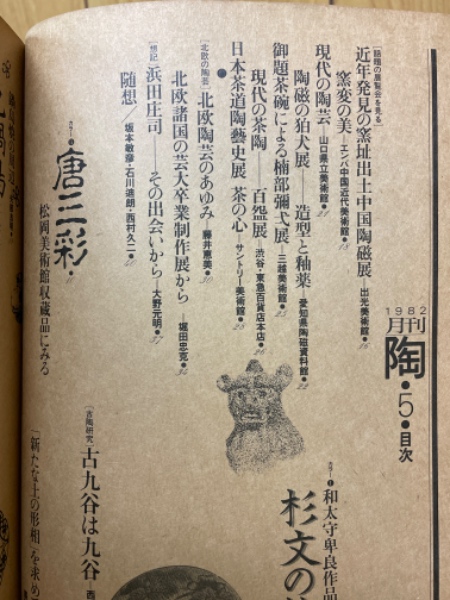 1982
月刊
陶・5・目次
カラー❶
和太守卑良作品
杉文の
[話題の展覧会を見る]
近年発見の窯址出土中国陶磁展――出光美術館●16
窯変の美――エンバ中国近代美術館●18
現代の陶芸――山口県立美術館●21
陶磁の狛犬展　造型と釉薬――愛知県陶磁資料館●22
御題茶碗による楠部彌弌展――三越美術館●25
現代の茶陶――百㤪展――渋谷・東急百貨店本店●26
日本茶道陶藝史展　茶の心――サントリー美術館●28
[北欧の陶芸]
北欧陶芸のあゆみ――藤井恵美●30
北欧諸国の芸大卒業制作展から――堀田忠克●36
[想記]
浜田庄司――その出会いから――大野元明●37
随想／坂本敏彦・石川鴻朗・西村久二●40
[古陶研究]
古九谷は九谷
カラー●
唐三彩●11
松岡美術館収蔵品にみる
「新たな土の形相」を求め